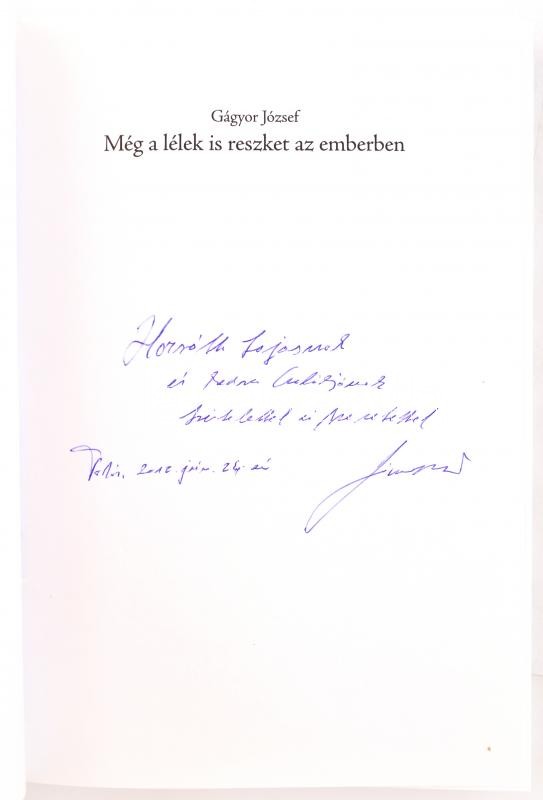 Gágyor József
Még a lélek is reszket az emberben
Horváth Lajosnak
és kedves Családjának
tisztelettel és szeretettel
2012. jún. 24-én